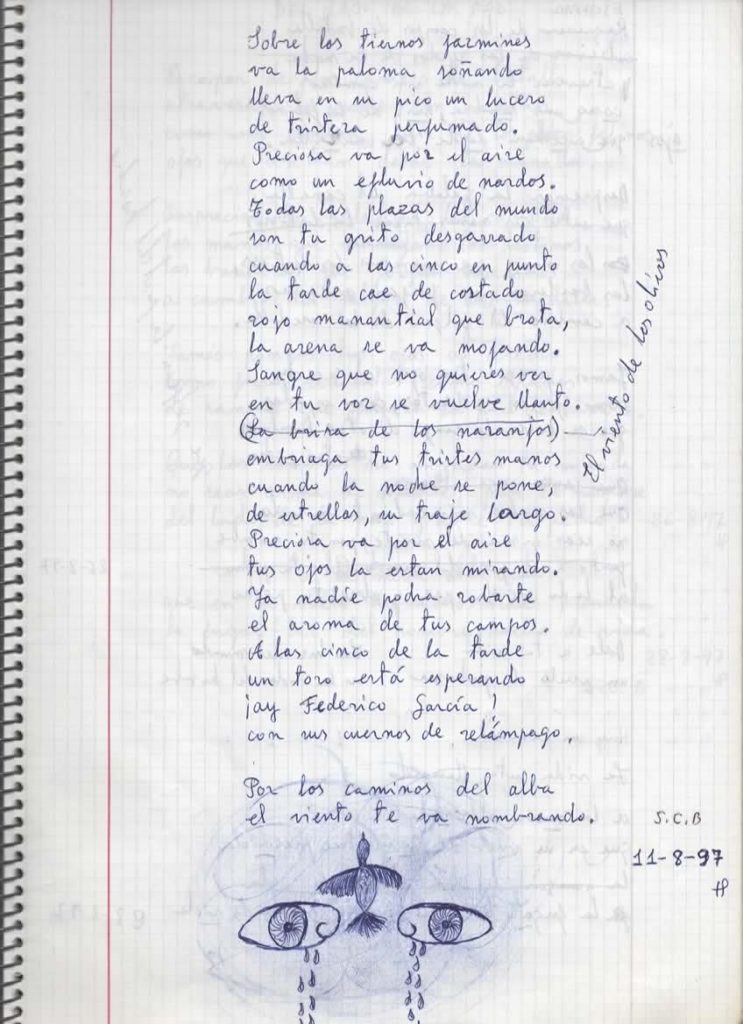 Sobre los tiernos jazmines
va la paloma soñando
lleva en su pico un lucero
de tristeza perfumado.
Preciosa va por el aire
como un efluvio de nardos.
Todas las plazas del mundo
son tu grito desgarrado
cuando a las cinco en punto
la tarde cae de costado
rojo manantial que brota,
la arena se va mojando.
Sangre que no quieres ver
en tu voz se vuelve llanto.
(La brisa de los naranjos)
El viento de los olivos
embriaga tus tristes manos
cuando la noche se pone,
de estrellas, su traje largo.
Preciosa va por el aire
tus ojos la estan mirando.
Ya nadie podra robarte
el aroma de tus campos.
A las cinco de la tarde
un toro está esperando
¡ay Federico García!
con sus cuernos de relámpago.
Por los caminos del alba
el viento te va nombrando.
S.C.B
11-8-97